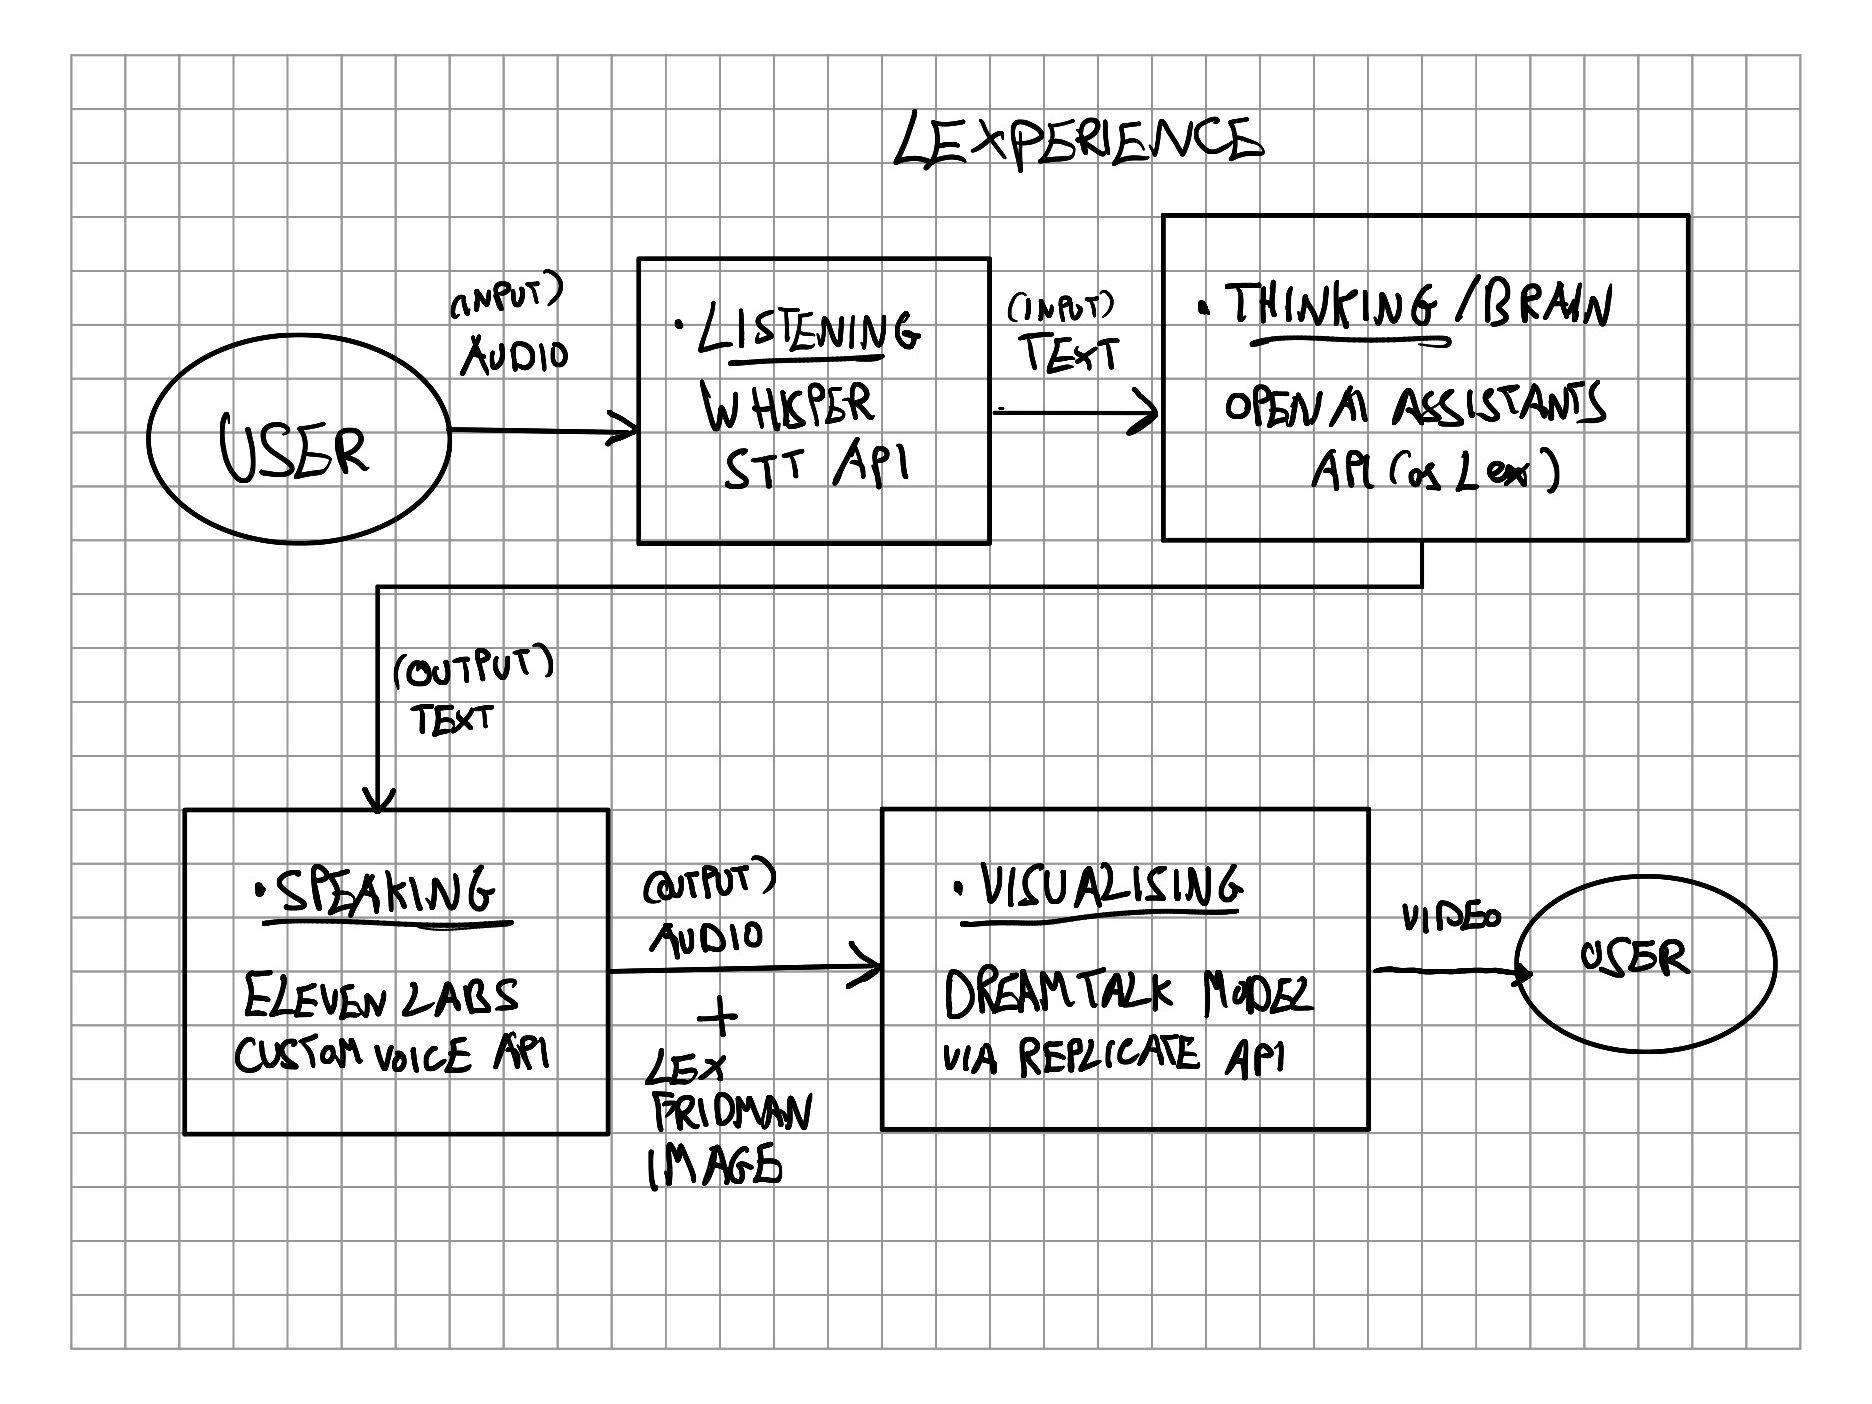 LEXPERIENCE
(INPUT)
AUDIO
USER
• LISTENING
WHISPER
STT API
(INPUT)
TEXT
• THINKING / BRAIN
OPEN AI ASSISTANTS
API (as Lex)
(OUTPUT)
TEXT
• SPEAKING
ELEVEN LABS
CUSTOM VOICE API
(OUTPUT)
AUDIO
+
LEX
FRIDMAN
IMAGE
• VISUALISING
DREAMTALK MODEL
VIA REPLICATE API
VIDEO
USER